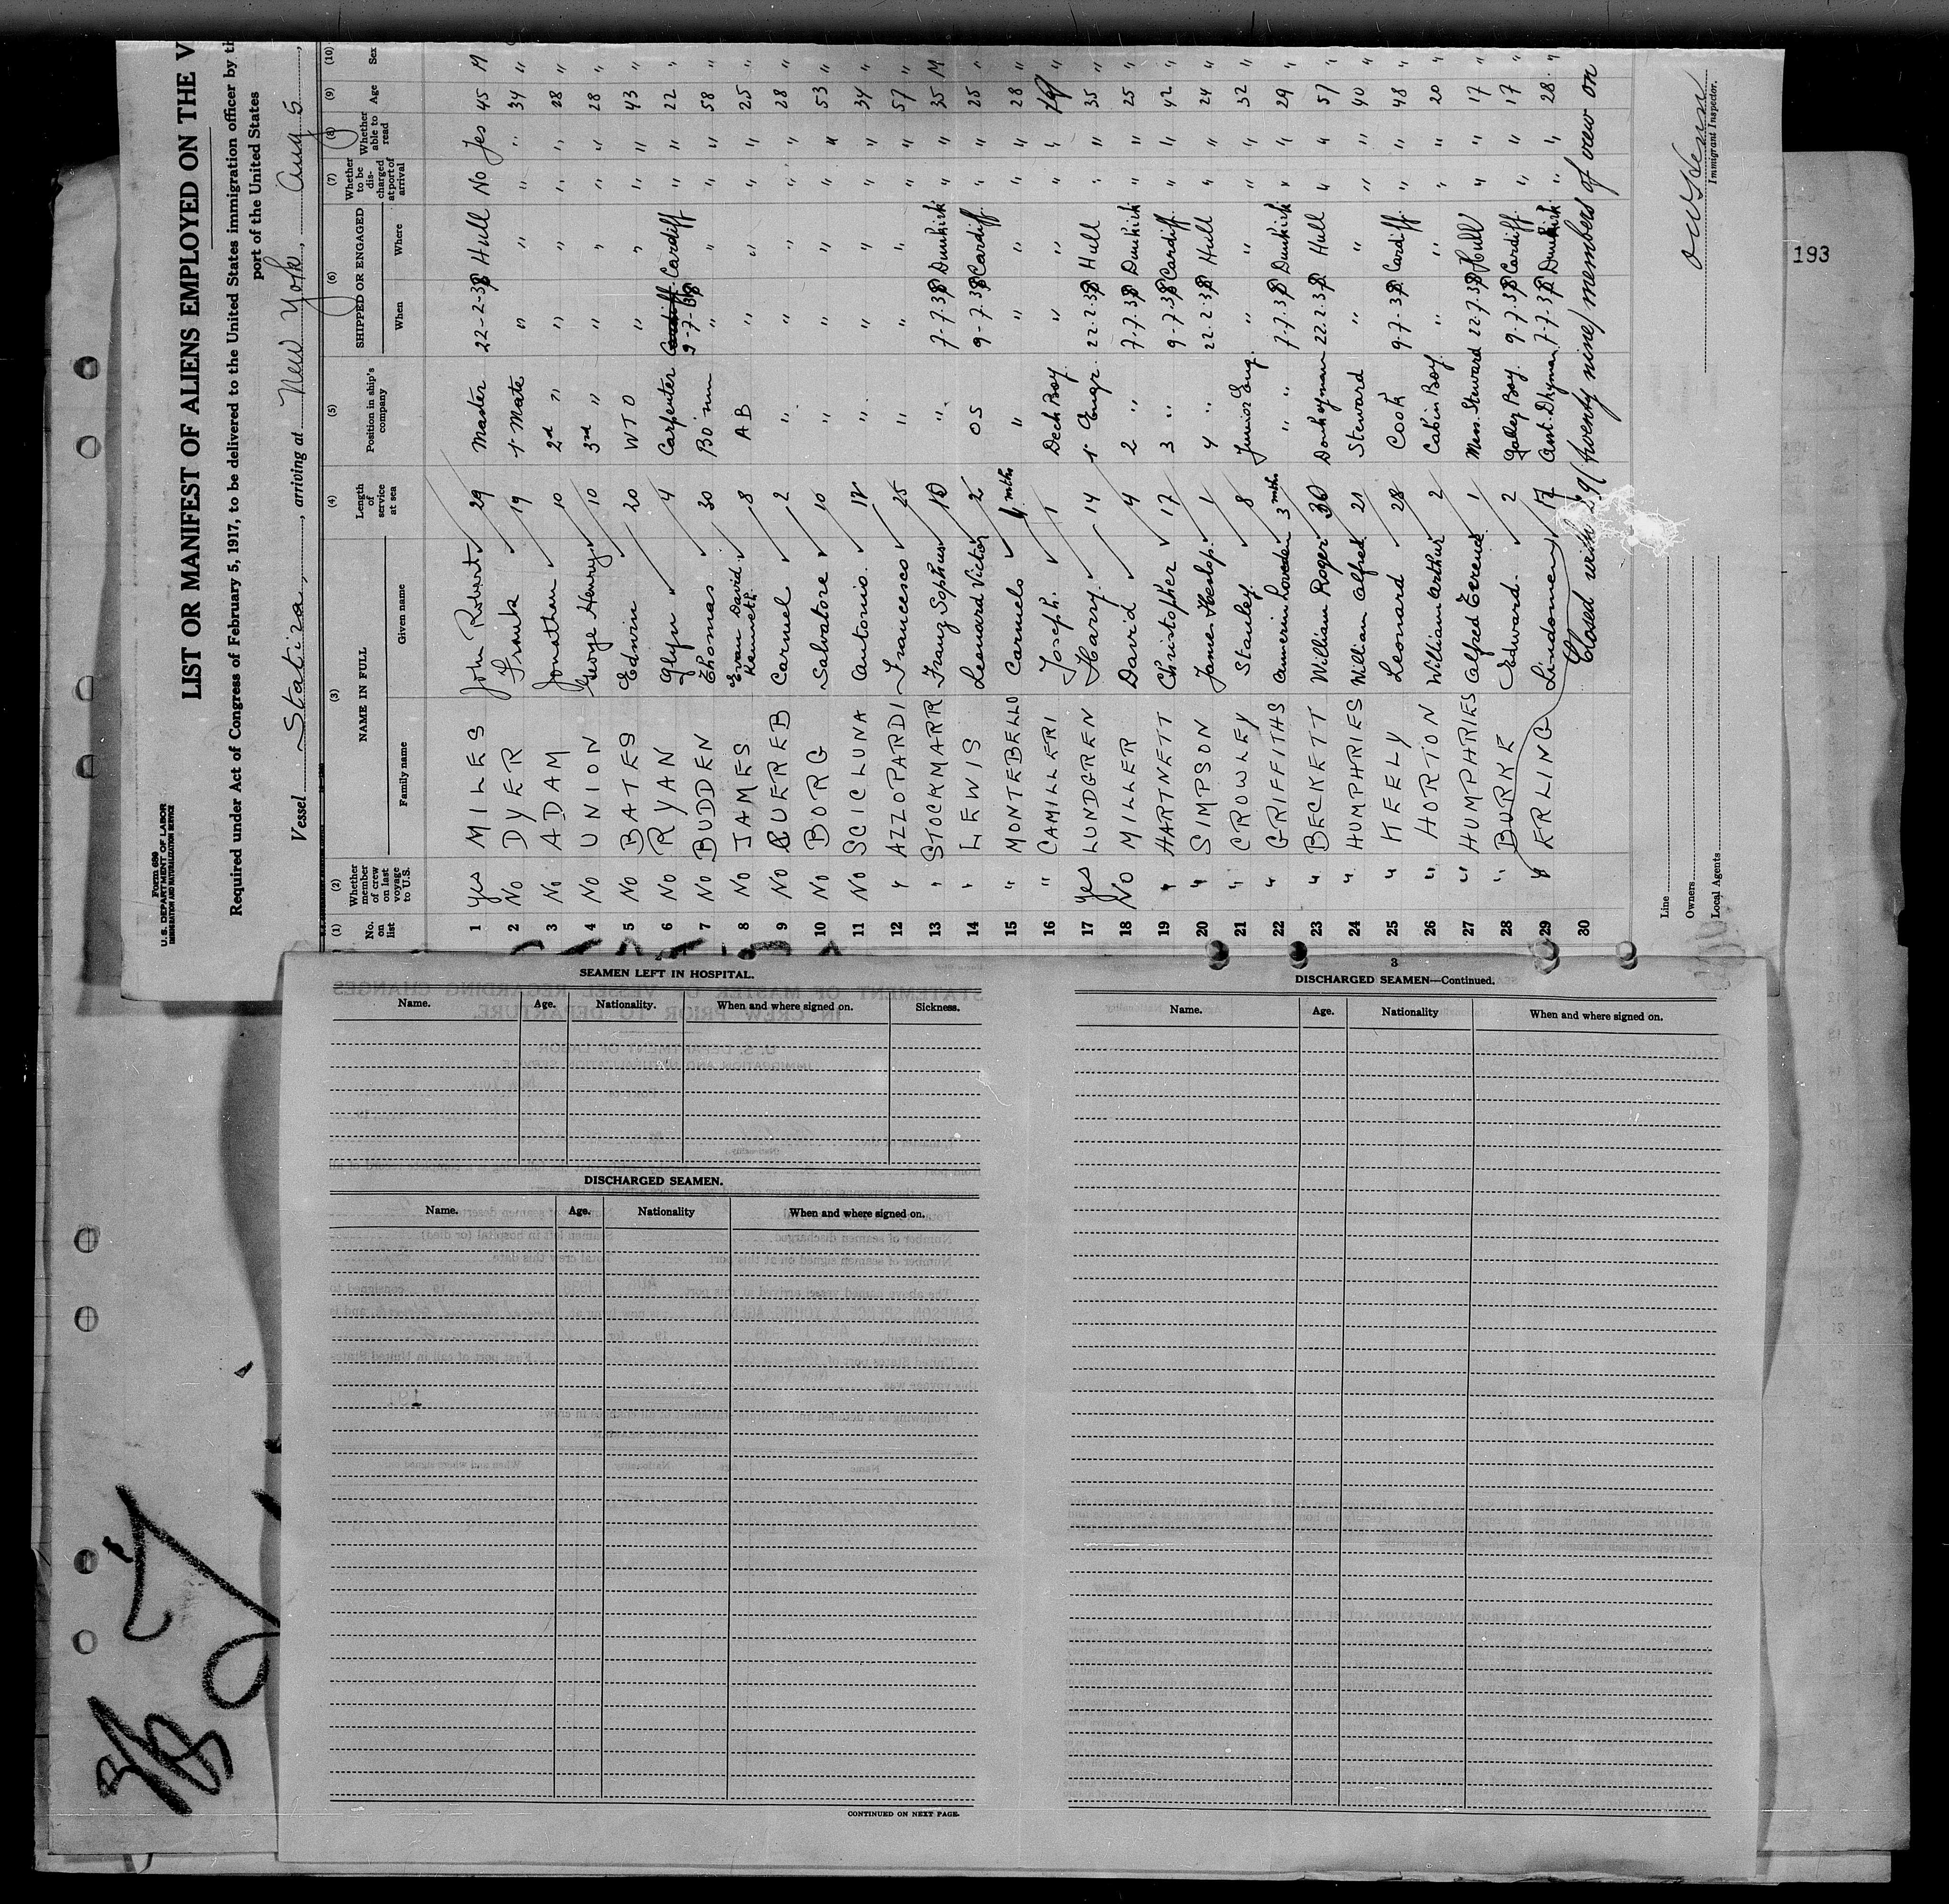 Form 689
U. S. DEPARTMENT OF LABOR
IMMIGRATION AND NATURALIZATION SERVICE
LIST OR MANIFEST OF ALIENS EMPLOYED ON THE V
Required under Act of Congress of February 5, 1917, to be delivered to the United States immigration officer by th
port of the United States
Vessel Statira, arriving at New York, Aug 5
(1) (2) (3) (4) (5) (6) (7) (8) (9) (10)
No. on list Whether member of crew on last voyage to U.S. NAME IN FULL Family name Given name Length of service at sea Position in ship's company SHIPPED OR ENGAGED When Where Whether to be discharged at port of arrival Whether able to read Age Sex
1 Yes MILES John Robert 29 Master 22-2-38 Hull No Yes 45 M
2 No DYER Frank 19 1st Mate " " " " 34 "
3 No ADAM Jonathan 10 2nd " " " " " 28 "
4 No UNION George Henry 10 3rd " " " " " 28 "
5 No BATES Edwin 20 WTO " " " " 43 "
6 No RYAN Glyn 4 Carpenter 9-7-38 Cardiff " " 22 "
7 No BUDDEN Thomas 30 Bo'sun " " " " 58 "
8 No JAMES Evan David Kenneth 8 AB " " " " 25 "
9 No BUEREB Carmel 2 " " " " " 28 "
10 No BORG Salvatore 10 " " " " " 53 "
11 No SCICLUNA Antonio 12 " " " " " 34 "
12 " AZZOPARDI Francesco 25 " " " " " 57 "
13 " STOCKMARR Franz Sophus 10 " 7-7-38 Dunkirk " " 35 M
14 " LEWIS Leonard Victor 2 OS 9-7-38 Cardiff " " 25 "
15 " MONTEBELLO Carmelo mths " " " " " 28 "
16 " CAMILLERI Joseph 1 Deck Boy " " " " 19 "
17 Yes LUNDGREN Harry 14 1st Engr. 22-2-38 Hull " " 35 "
18 No MILLER David 4 2 " 7-7-38 Dunkirk " " 25 "
19 " HARTNETT Christopher 17 3 " 9-7-38 Cardiff " " 42 "
20 " SIMPSON James Heslop 1 4 " 22-2-38 Hull " " 24 "
21 " CROWLEY Stanley 8 Junior Eng. " " " " 32 "
22 " GRIFFITHS 3 mths " " 7-7-38 Dunkirk " " 29 "
23 " BECKETT William Roger 30 Donkeyman 22-2-38 Hull " " 57 "
24 " HUMPHRIES William Alfred 21 Steward " " " " 40 "
25 " KEELY Leonard 28 Cook 9-7-38 Cardiff " " 48 "
26 " HORTON William Arthur 2 Cabin Boy " " " " 20 "
27 " HUMPHRIES Alfred Terence 1 Mess. Steward 22-7-38 Hull " " 17 "
28 " BURKE Edward 2 Galley Boy 9-7-38 Cardiff " " 17 "
29 " ERLING Lindomen 17 Asst. Dkyman 7-7-38 Dunkirk " " 28 "
30 Closed with 29 (twenty nine) members of crew on
Line
Owners
Local Agents
Immigrant Inspector.
193
SEAMEN LEFT IN HOSPITAL.
Name. Age. Nationality. When and where signed on. Sickness.
DISCHARGED SEAMEN.
Name. Age. Nationality When and where signed on.
CONTINUED ON NEXT PAGE.
3
DISCHARGED SEAMEN—Continued.
Name. Age. Nationality When and where signed on.